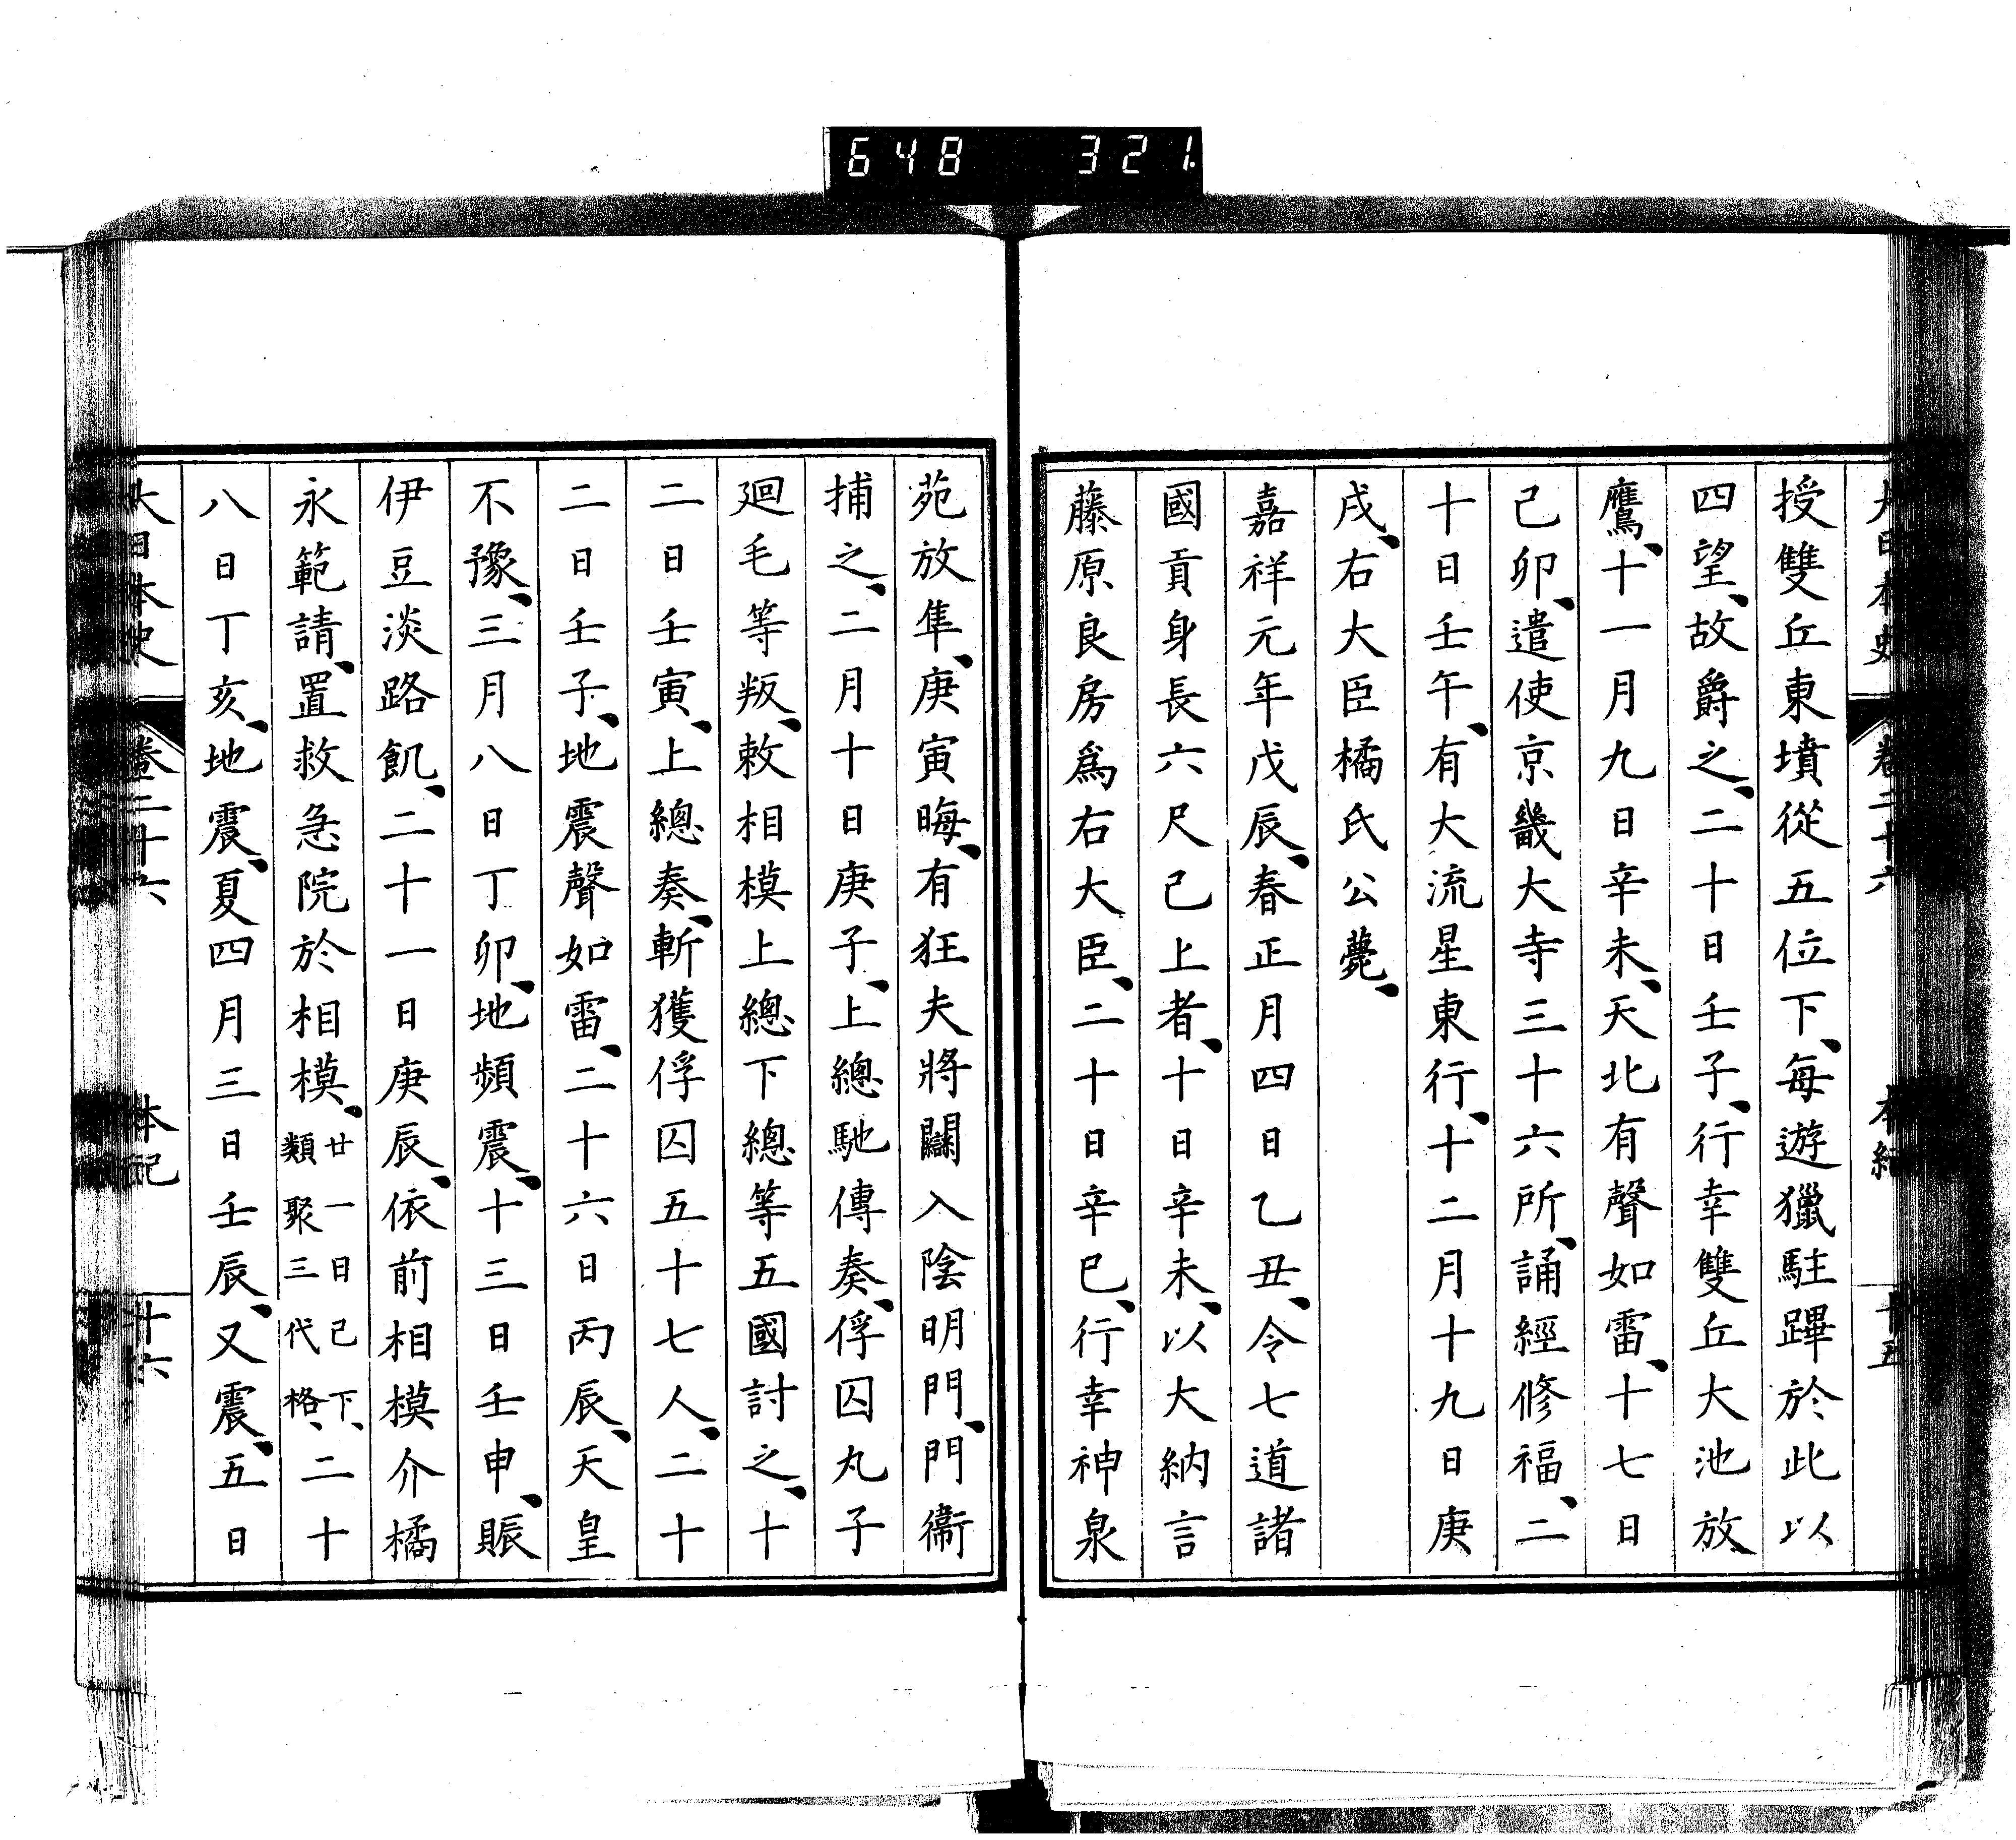 648 321
大日本史 卷二十六 本紀 廿五
授雙丘東墳從五位下、每遊獵駐蹕於此以
四望、故爵之、二十日壬子、行幸雙丘大池放
鷹、十一月九日辛未、天北有聲如雷、十七日
己卯、遣使京畿大寺三十六所、誦經修福、二
十日壬午、有大流星東行、十二月十九日庚
戌、右大臣橘氏公薨、
嘉祥元年戊辰、春正月四日乙丑、令七道諸
國貢身長六尺己上者、十日辛未、以大納言
藤原良房爲右大臣、二十日辛巳、行幸神泉
苑放隼、庚寅晦、有狂夫將闌入陰明門、門衞
捕之、二月十日庚子、上總馳傳奏、俘囚丸子
廻毛等叛、敕相模上總下總等五國討之、十
二日壬寅、上總奏、斬獲俘囚五十七人、二十
二日壬子、地震聲如雷、二十六日丙辰、天皇
不豫、三月八日丁卯、地頻震、十三日壬申、賑
伊豆淡路飢、二十一日庚辰、依前相模介橘
永範請、置救急院於相模、廿一日己下、類聚三代格、二十
八日丁亥、地震、夏四月三日壬辰、又震、五日
大日本史 卷二十六 本紀 廿六